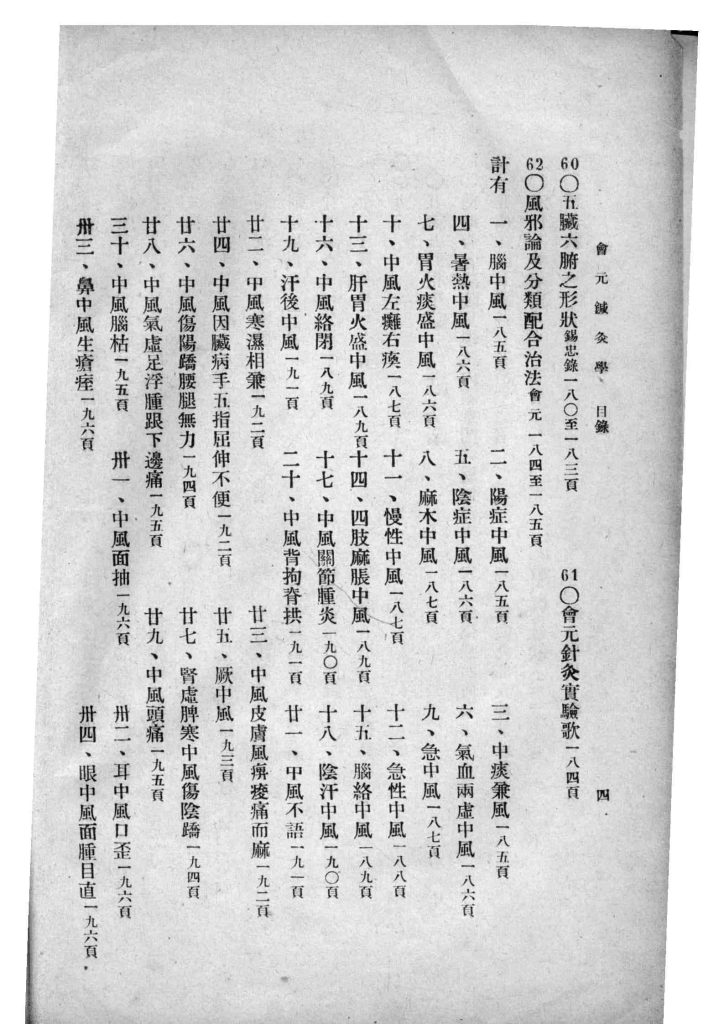 會元鍼灸學、 目錄 四
60〇五臟六腑之形狀錫忠錄一八〇至一八三頁 61〇會元針灸實驗歌一八四頁
62〇風邪論及分類配合治法會元 一八四至一八五頁
計有 一、腦中風一八五頁 二、陽症中風一八五頁 三、中痰兼風一八五頁
四、暑熱中風一八六頁 五、陰症中風一八六頁 六、氣血兩虛中風一八六頁
七、胃火痰盛中風一八六頁 八、麻木中風一八七頁 九、急中風一八七頁
十、中風左癱右瘓一八七頁 十一、慢性中風一八七頁 十二、急性中風一八八頁
十三、肝胃火盛中風一八九頁 十四、四肢麻脹中風一八九頁 十五、腦絡中風一八九頁
十六、中風絡閉一八九頁 十七、中風關節腫炎一九〇頁 十八、陰汗中風一九〇頁
十九、汗後中風一九一頁 二十、中風背拘脊拱一九一頁 廿一、中風不語一九一頁
廿二、中風寒濕相兼一九二頁 廿三、中風皮膚風痹痠痛而麻一九二頁
廿四、中風因臟病手五指屈伸不便一九二頁 廿五、厥中風一九三頁
廿六、中風傷陽蹻腰腿無力一九四頁 廿七、腎虛脾寒中風傷陰蹻一九四頁
廿八、中風氣虛足浮腫跟下邊痛一九五頁 廿九、中風頭痛一九五頁
三十、中風腦枯一九五頁 卅一、中風面抽一九六頁 卅二、耳中風口歪一九六頁
卅三、鼻中風生瘡痓一九六頁 卅四、眼中風面腫目直一九六頁.